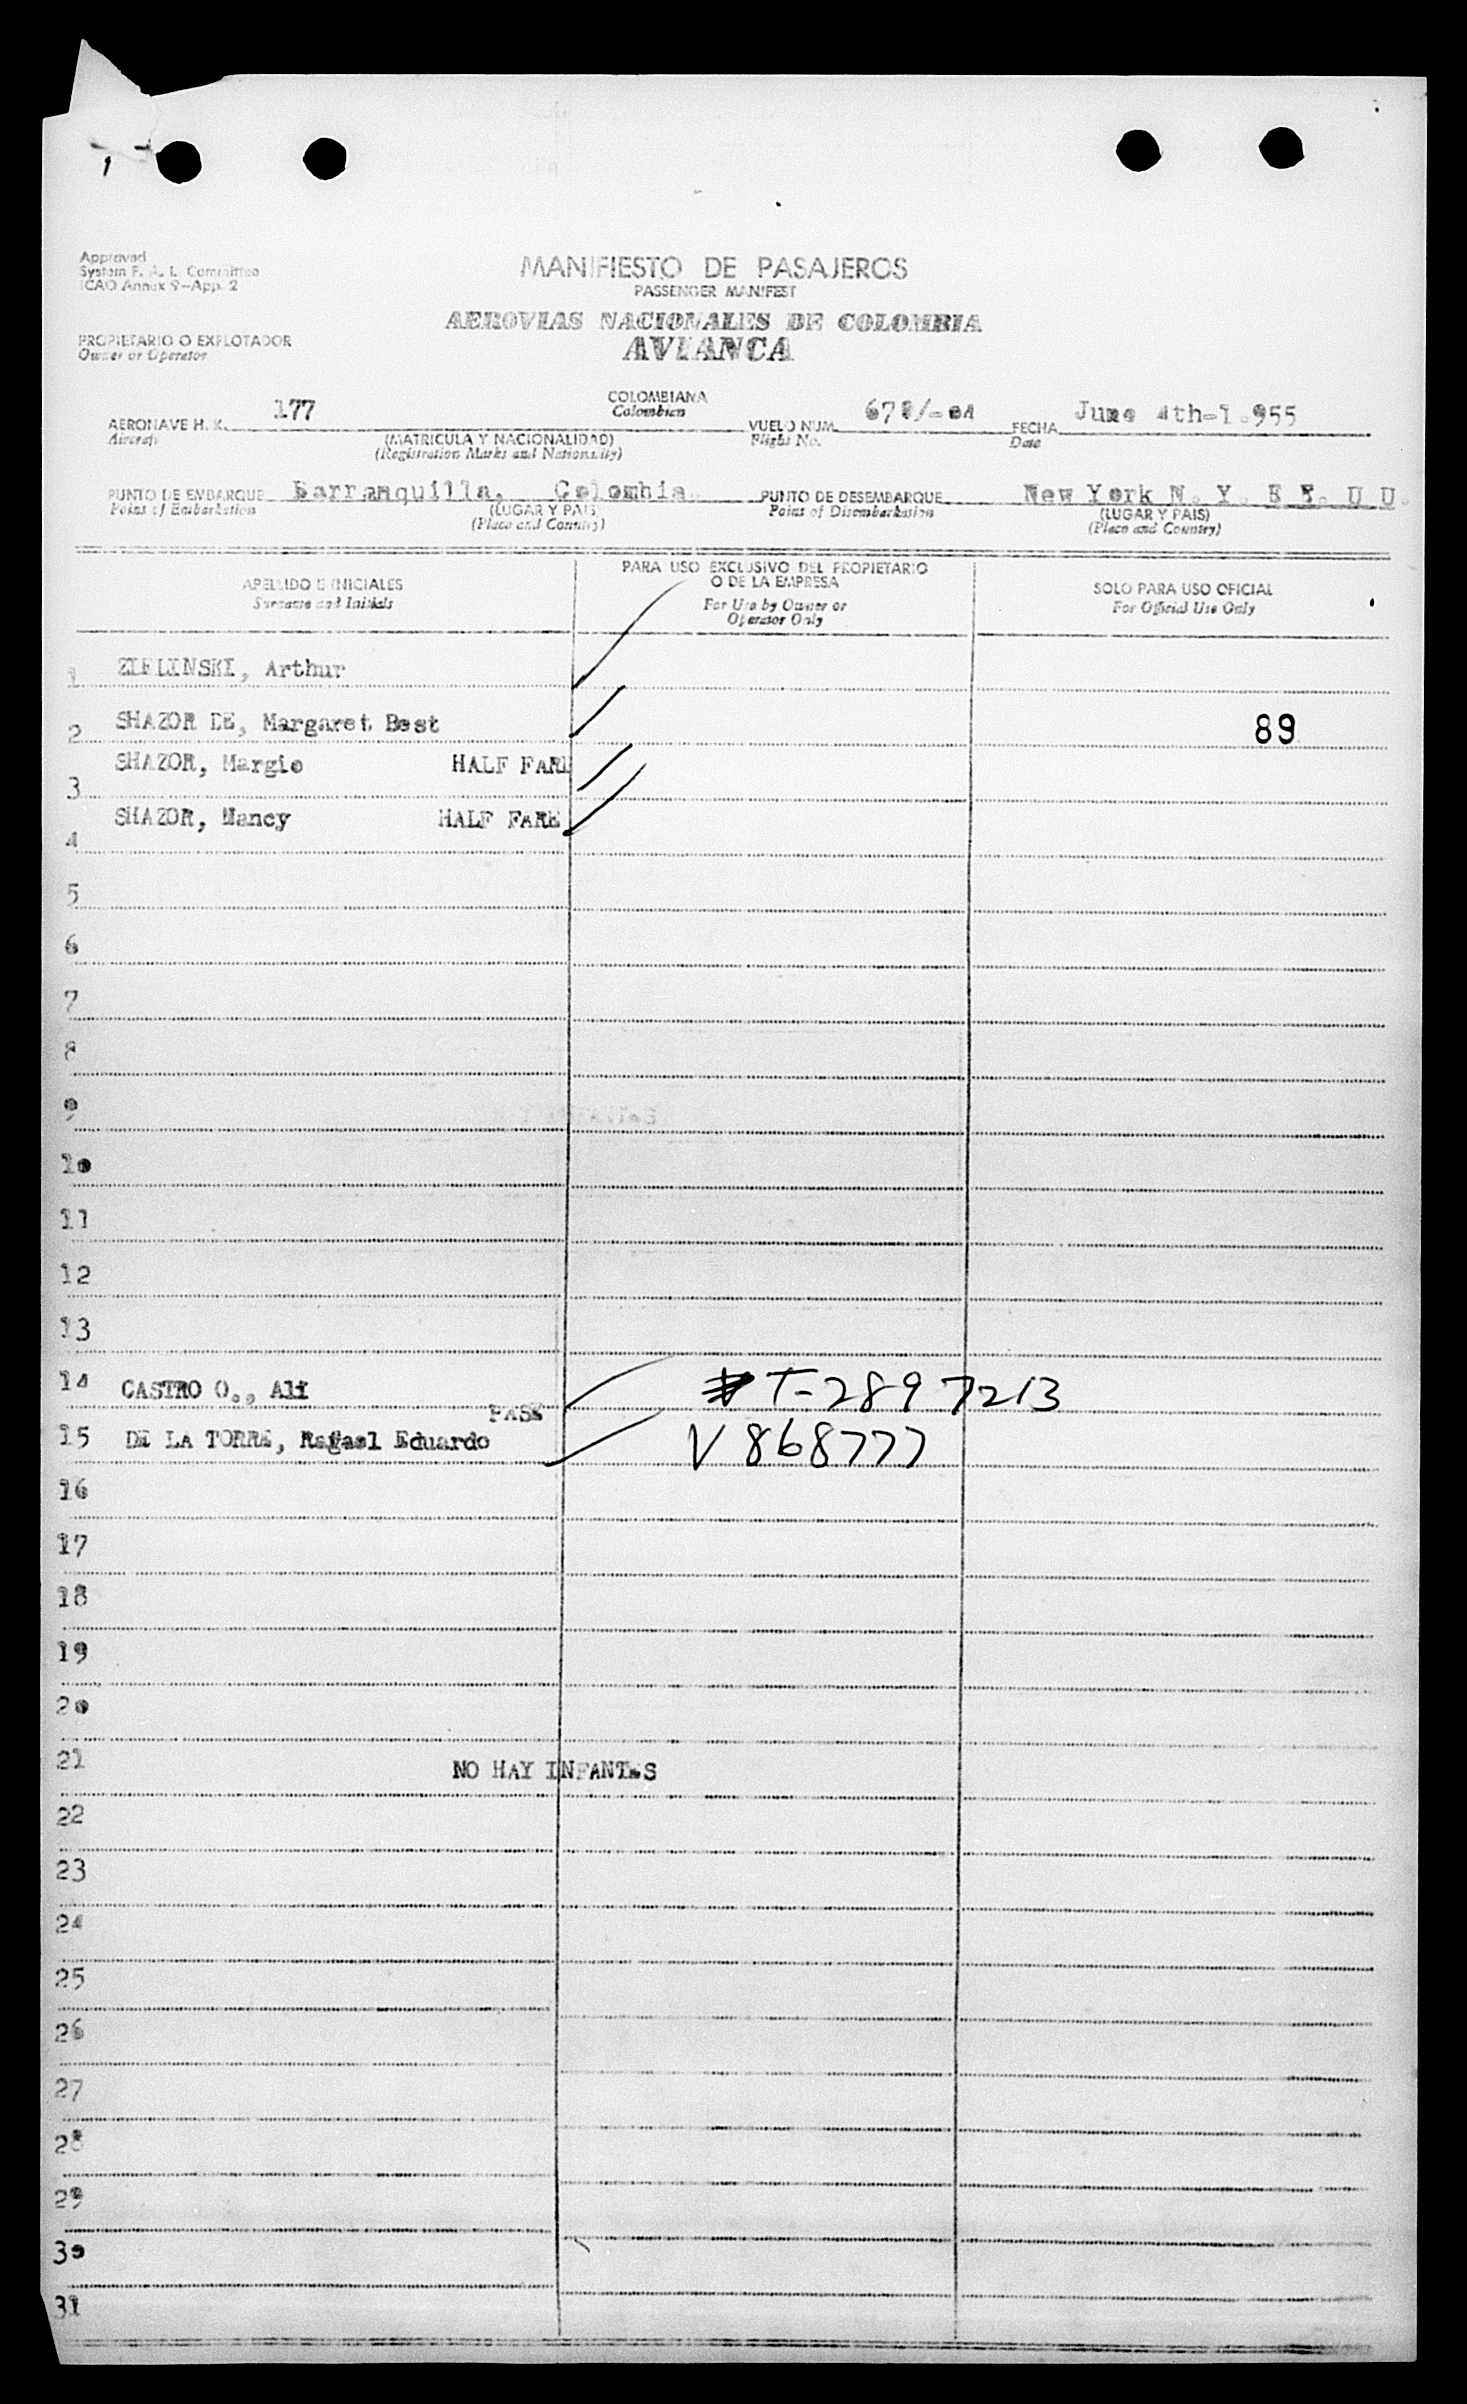 Approved
System F. A. L. Committee
ICAO Annex 9-App. 2
MANIFIESTO DE PASAJEROS
PASSENGER MANIFEST
AEROVIAS NACIONALES DE COLOMBIA
AVIANCA
PROPIETARIO O EXPLOTADOR
Owner or Operator
AERONAVE H. K. 177 COLOMBIANA VUELO NUM. FECHA June 4th-1.955
Aircraft Colombian Flight No. Date
(MATRICULA Y NACIONALIDAD)
(Registration Marks and Nationality)
PUNTO DE EMBARQUE Barranquilla, Colombia. PUNTO DE DESEMBARQUE New York N. Y. E E. U U.
Point of Embarkation (LUGAR Y PAIS) Point of Disembarkation (LUGAR Y PAIS)
(Place and Country) (Place and Country)
APELLIDO E INICIALES PARA USO EXCLUSIVO DEL PROPIETARIO O DE LA EMPRESA SOLO PARA USO OFICIAL
Surname and Initials For Use by Owner or Operator Only For Official Use Only
1 ZIELINSKI, Arthur
2 SHAZOR DE, Margaret Best 89
3 SHAZOR, Margie HALF FARE
4 SHAZOR, Nancy HALF FARE
5
6
7
8
9
10
11
12
13
14 CASTRO O., Ali # T-2897213
PASS
15 DE LA TORRE, Rafael Eduardo V 868777
16
17
18
19
20
21 NO HAY INFANTES
22
23
24
25
26
27
28
29
30
31